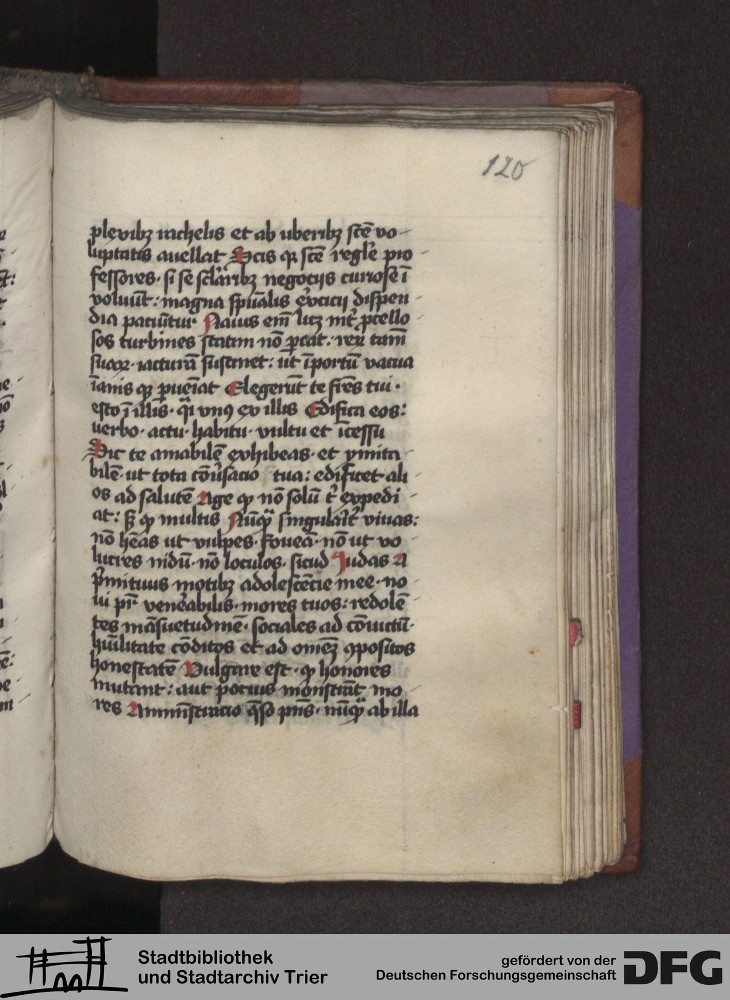 120
plexibꝫ rachelis et ab uberibꝫ scē vo
luptatis auellat Scis qꝛ scē regl'e pro
fessores · si se sclāribꝫ negociis curiose ī
voluūt : magna spūalis exicii dispen
dia patiūtur Nauis em̄ licꝫ int̄ pcello
sos turbines statim nō ꝑeat · reꝝ tam̄
suaꝝ · iacturā sustinet : ut ī portū vacua
īanis qꝫ ꝑueīat Elegerūt te frēs tui ·
esto ī illis · q̄i vnꝰ ex illis Edifica eos :
uerbo · actu · habitu · vultu et īcessu
Sic te amabilē exhibeas · et ymita
bilē · ut tota cōūsacio tua : edificet ali
os ad salutē Age qꝫ nō solū t' expedi
at : sꝫ qꝫ multis Nūqꝫ singulārit' viuas :
nō hēas ut vulpes · foueā · nō ut vo
lucres nidū · nō loculos · sicud Judas A
p̄mitiuus motibꝫ adolescēcie mee · no
ui pr̄ venēabilis · mores tuos : redolē
tes māsuetudinē · sociales ad cōuictū ·
hūilitate cōditos et ad omēꝫ ꝯpositos
honestatē Vulgare est · qꝫ honores
mutant : aut pocius mōnstrāt mo
res Amministracio q̄so pn̄s · nūqꝫ ab illa
Stadtbibliothek
und Stadtarchiv Trier
gefördert von der
Deutschen Forschungsgemeinschaft
DFG